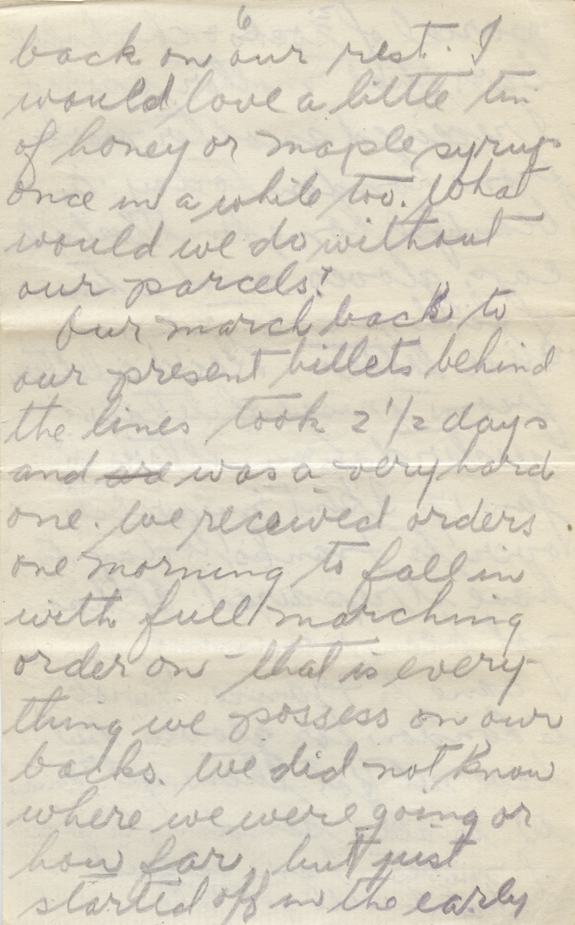 6
back on our rest. I
would love a little tin
of honey or maple syrup
once in a while too. What
would we do without
our parcels!
Our march back to
our present billets behind
the lines took 2 1/2 days
and are was a very hard
one. We received orders
one morning to fall in
with full marching
order on - that is every-
thing we possess on our
backs. We did not know
where we were going or
how far, but just
started off in the early